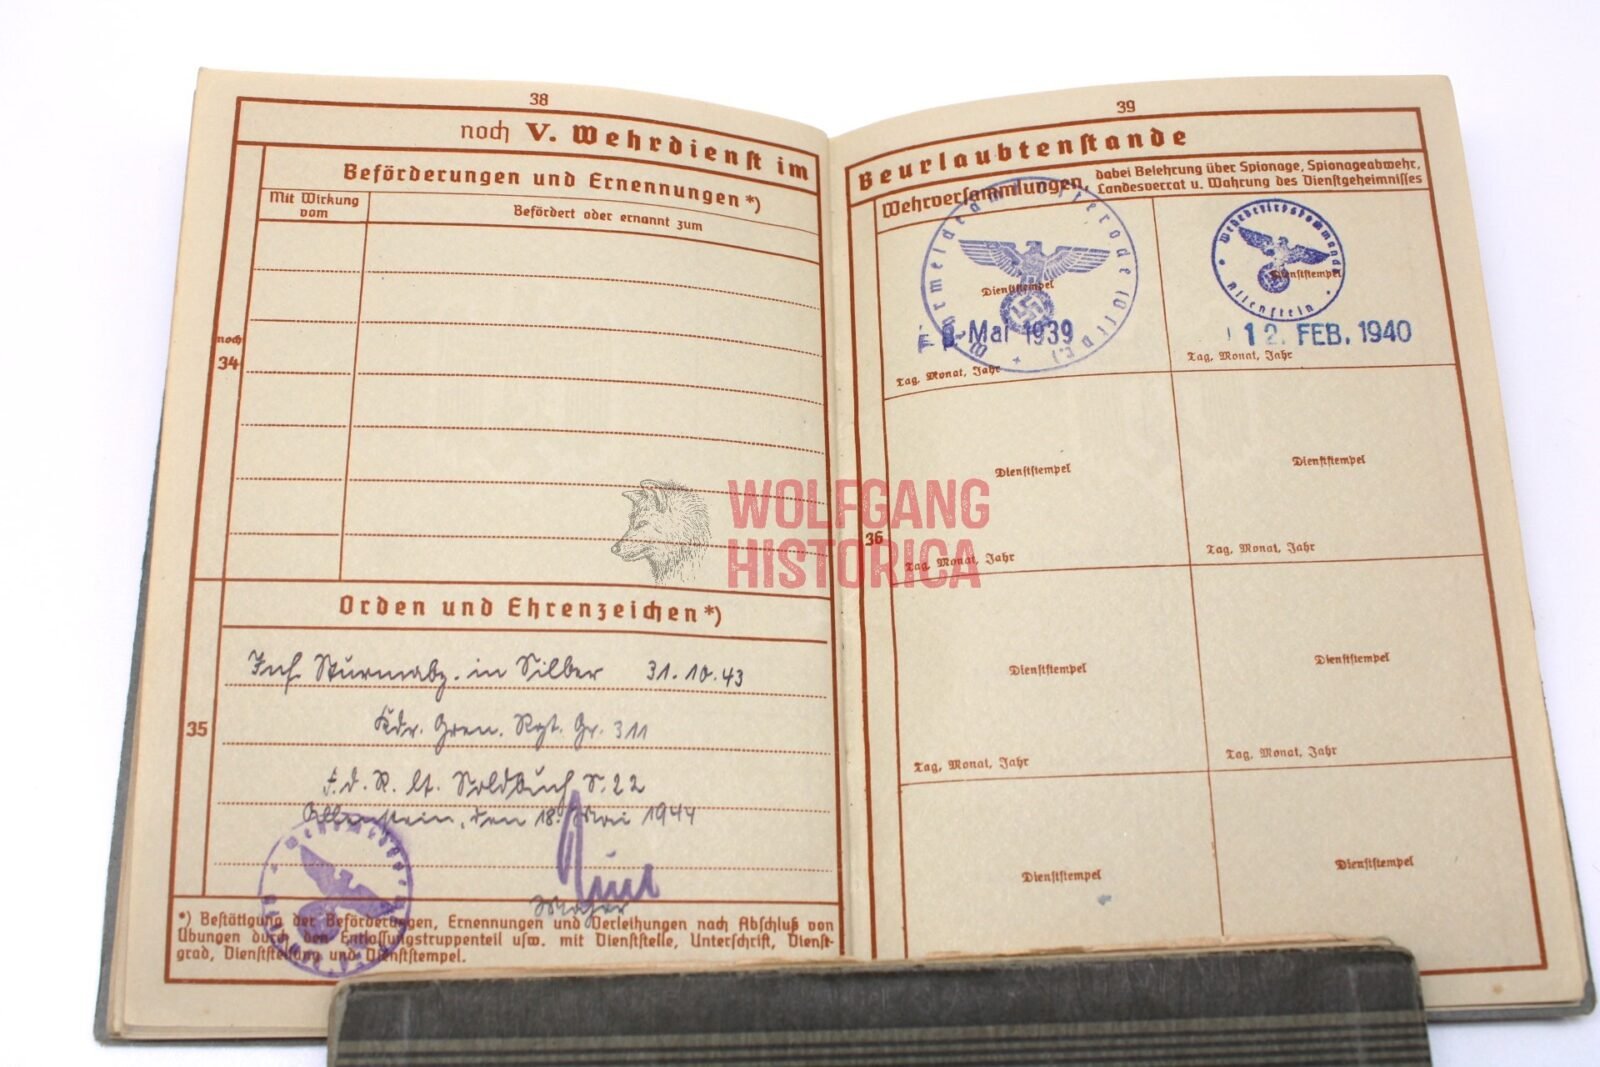 38
noch V. Wehrdienst im
Beförderungen und Ernennungen *)
Mit Wirkung vom
Befördert oder ernannt zum
noch
34
Orden und Ehrenzeichen *)
Inf. Sturmabz. in Silber 31.10.43
Kdr. Gren. Rgt. Gr. 311
F. d. R. lt. Soldbuch S. 22
Allenstein, den 18. Mai 1944
Major
35
*) Bestätigung der Beförderungen, Ernennungen und Verleihungen nach Abschluß von
Übungen durch den Entlassungstruppenteil usw. mit Dienststelle, Unterschrift, Dienst-
grad, Dienststellung und Dienststempel.
39
Beurlaubtenstande
Wehrversammlungen, dabei Belehrung über Spionage, Spionageabwehr,
Landesverrat u. Wahrung des Dienstgeheimnisses
Wehrmeldeamt Osterode (Ostpr.)
Dienststempel
Mai 1939
Tag, Monat, Jahr
Wehrbezirkskommando Allenstein
Dienststempel
12. FEB. 1940
Tag, Monat, Jahr
36
Dienststempel
Tag, Monat, Jahr
Dienststempel
Tag, Monat, Jahr
Dienststempel
Tag, Monat, Jahr
Dienststempel
Tag, Monat, Jahr
Dienststempel
Dienststempel
WOLFGANG
HISTORICA